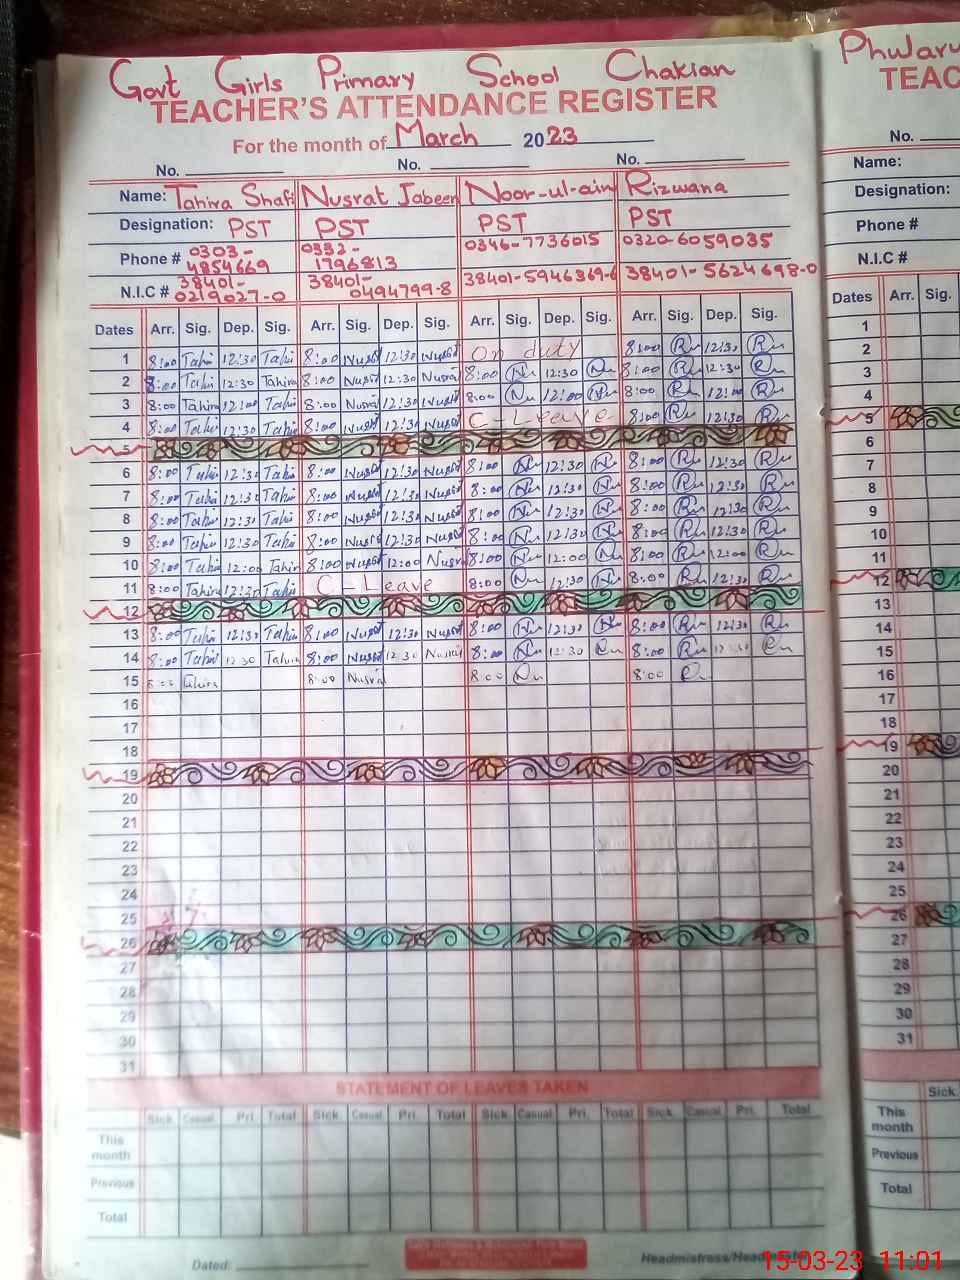 Govt Girls Primary School Chakian
TEACHER'S ATTENDANCE REGISTER
For the month of March 2023
No. No. No.
Name: Tahira Shafi Nusrat Jabeen Noor-ul-ain Rizwana
Designation: PST PST PST PST
Phone # 0303-4854669 0332-1796813 0346-7736015 0320-6059035
N.I.C # 38401-0219027-0 38401-0494799-8 38401-5946369-6 38401-5624698-0
Dates Arr. Sig. Dep. Sig. Arr. Sig. Dep. Sig. Arr. Sig. Dep. Sig. Arr. Sig. Dep. Sig.
1 8:00 Tahi 12:30 Tahi 8:00 Nusrat 12:30 Nusrat On duty 8:00 Ru 12:30 Ru
2 8:00 Tahi 12:30 Tahira 8:00 Nusrat 12:30 Nusrat 8:00 Nu 12:30 Nu 8:00 Ru 12:30 Ru
3 8:00 Tahira 12:00 Tahi 8:00 Nusrat 12:30 Nusrat 8:00 Nu 12:00 Nu 8:00 Ru 12:00 Ru
4 8:00 Tahi 12:30 Tahi 8:00 Nusrat 12:30 Nusrat C-Leave 8:00 Ru 12:30 Ru
5
6 8:00 Tahi 12:30 Tahi 8:00 Nusrat 12:30 Nusrat 8:00 Nu 12:30 Nu 8:00 Ru 12:30 Ru
7 8:00 Tahi 12:30 Tahi 8:00 Nusrat 12:30 Nusrat 8:00 Nu 12:30 Nu 8:00 Ru 12:30 Ru
8 8:00 Tahi 12:30 Tahi 8:00 Nusrat 12:30 Nusrat 8:00 Nu 12:30 Nu 8:00 Ru 12:30 Ru
9 8:00 Tahi 12:30 Tahi 8:00 Nusrat 12:30 Nusrat 8:00 Nu 12:30 Nu 8:00 Ru 12:30 Ru
10 8:00 Tahi 12:00 Tahira 8:00 Nusrat 12:00 Nusrat 8:00 Nu 12:00 Nu 8:00 Ru 12:00 Ru
11 8:00 Tahira 12:30 Tahi C Leave 8:00 Nu 12:30 Nu 8:00 Ru 12:30 Ru
12
13 8:00 Tahi 12:30 Tahi 8:00 Nusrat 12:30 Nusrat 8:00 Nu 12:30 Nu 8:00 Ru 12:30 Ru
14 8:00 Tahi 12:30 Tahira 8:00 Nusrat 12:30 Nusrat 8:00 Nu 12:30 8:00 Ru 12:30
15 8:00 Tahira 8:00 Nusrat 8:00 Nu 8:00
16
17
18
19
20
21
22
23
24
25
26
27
28
29
30
31
STATEMENT OF LEAVES TAKEN
Sick Casual Pri. Total Sick Casual Pri. Total Sick Casual Pri. Total Sick Casual Pri. Total
This month
Previous
Total
Dated:
15-03-23 11:01
Phularu
TEAC
No.
Name:
Designation:
Phone #
N.I.C #
Dates Arr. Sig.
1
2
3
4
5
6
7
8
9
10
11
12
13
14
15
16
17
18
19
20
21
22
23
24
25
26
27
28
29
30
31
Sick
This month
Previous
Total